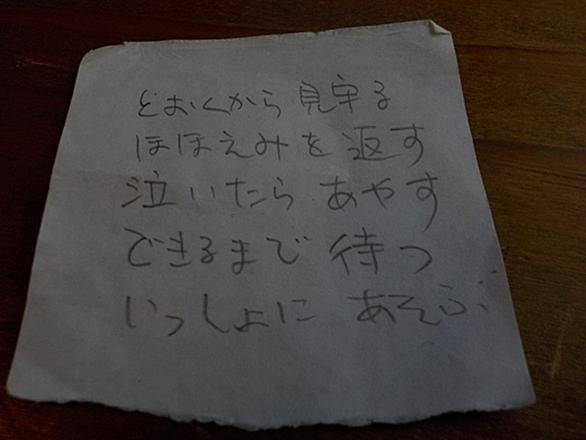 とおくから 見守る
ほほえみを 返す
泣いたら あやす
できるまで 待つ
いっしょに あそぶ